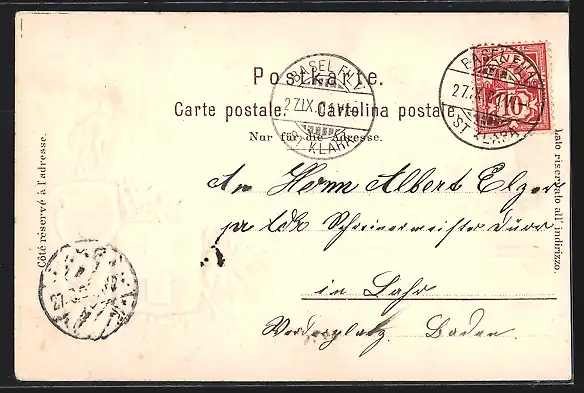 Postkarte.
Carte postale. Cartolina postale.
Nur für die Adresse.
Côté réservé à l'adresse.
Lato riservato all' indirizzo.
BASEL
27.IX.
ST KLARA
BASEL
27.IX.
ST KLARA
10
27
An Herrn Albert Elger
Schreinermeister Dürr
in Lahr
Baden.